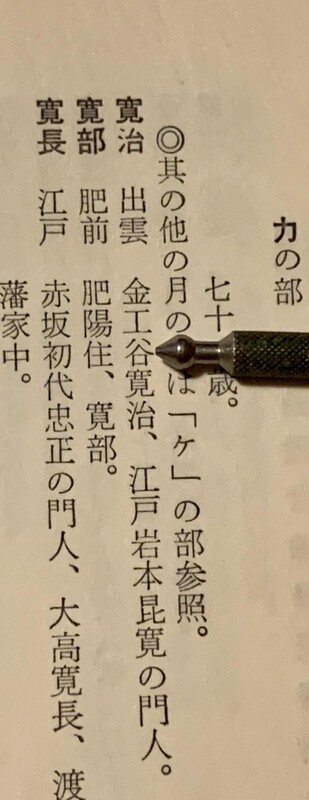 カの部
七十歳。
◎其の他の月のは「ケ」の部参照。
寛治 出雲 金工谷寛治、江戸岩本昆寛の門人。
寛部 肥前 肥陽住、寛部。
寛長 江戸 赤坂初代忠正の門人、大高寛長、渡
藩家中。